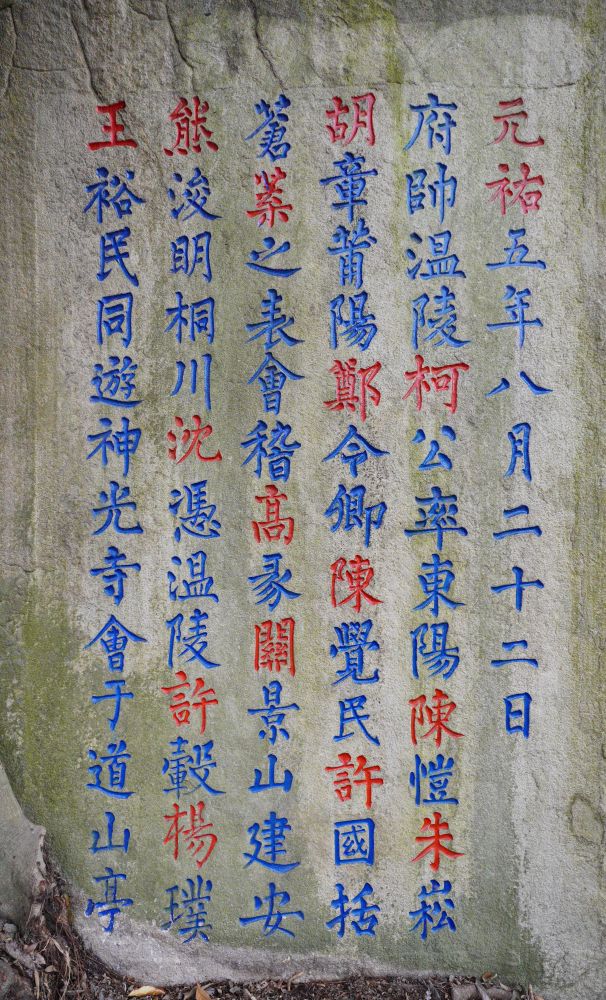 元祐五年八月二十二日
府帥温陵柯公率東陽陳愷朱崧
胡章莆陽鄭令卿陳覺民許國括
蒼葉之表會稽高彖關景山建安
熊浚眀桐川沈慿温陵許轂楊璞
王裕民同遊神光寺會于道山亭